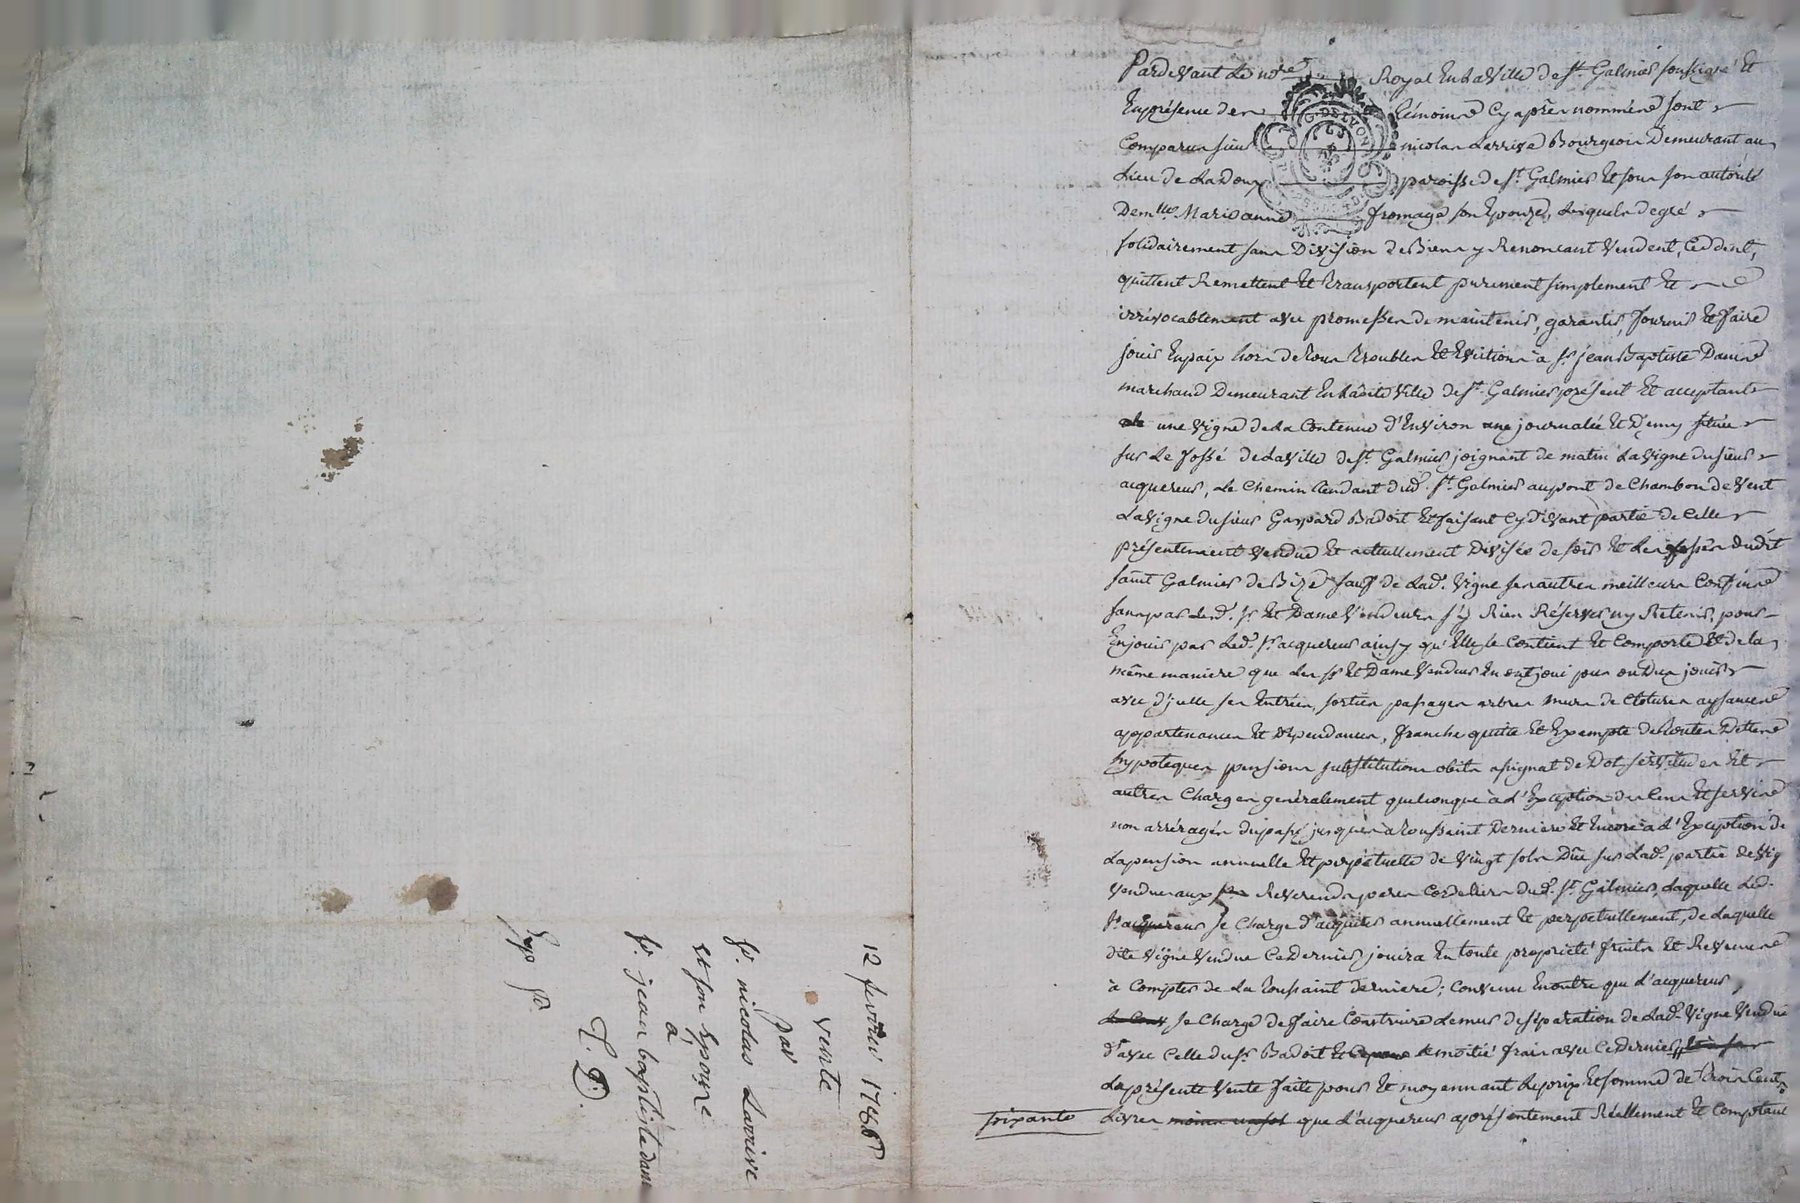 12 fevrier 1786
vente
par
Sr. nicolas Larrive
et son Epouse
à
Sr. jean baptiste dam
Exp
T. D.
Pardevant Le nore Royal En La Ville de St. Galmier soussigné Et
En présence des témoins Cy après nommés sont
Comparus sieur nicolas Larrive Bourgeois Demeurant au
Lieu de La Doux paroisse de St. Galmier Et sous son autorité
Demlle. Marianne fromage son Epouze, Lesquels de gré
solidairement sans Division de Biens y Renoncant Vendent, Ceddent,
quittent Remettent Et transportent purement simplement Et
irrévocablement avec promesses de maintenir, garantir, fournir Et faire
jouir En paix hors de tous troubles Et Evictions à Sr. jean Baptiste Damé
marchand Demeurant En Ladite Ville de St. Galmier présent Et acceptant
une Vigne de La Contenue d'Environ une journalée Et Demy située
sur Le fossé de La Ville de St. Galmier joignant de matin La Vigne du sieur
acquereur, Le Chemin tendant dud. St. Galmier au pont de Chambon de Vent
La Vigne du sieur Gaspard Badoit Et faisant Cy devant partie de Celle
présentement Vendue Et actuellement Divisée de soir Et Les fossés dudit
saint Galmier de Bize sauf de Lad. Vigne ses autres meilleurs Confins
sans par Lesd. Sr. Et Dame Vendeurs s'y Rien Réserver ny Retenir, pour
En jouir par Led. Sr. acquereur ainsy qu'Elle se Contient Et Comporte Et de la
même maniere que Les Sr. Et Dame Vendeurs En ont joui pu ou Du jouir
avec d'jcelle ses Entrées, sorties passages arbres murs de Clotures aysances
appartenances Et Dépendances, franche quitte Et Exempte de toutes Dettes
hypoteques pensions substitutions obits assignat de Dot servitudes Et
autres Charges généralement quelconque à L'Exception du Cens Et servis
non arréragés du passé jusques à toussaint Derniere Et Encore à L'Exception de
La pension annuelle Et perpétuelle de Vingt sols Düe sur Lad. partie de Vig
Vendue aux Reverends peres Cordeliers dud. St. Galmier, Laquelle Led.
Sr. acquereur se Charge d'acquiter annuellement Et perpetuellement, de Laquelle
dite Vigne Vendue Ce Dernier jouira En toute propriété fruits Et Revenus
à Compter de La toussaint derniere; Convenu En outre que L'acquereur
se Charge de faire Construire Le mur de séparation de Lad. Vigne Vendue
d'avec Celle du Sr. Badoit à moitié frais avec Ce Dernier
La présente Vente faite pour Et moyennant Le prix Et somme de trois Cent
soixante Livres que L'acquereur a présentement Réellement Et Comptant